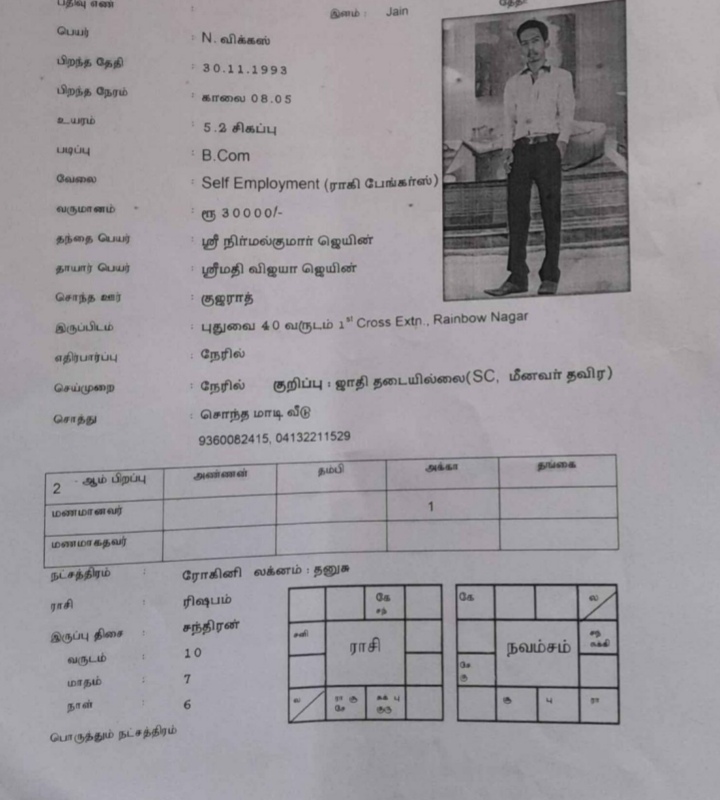 பதிவு எண் :
இனம் : Jain
தேதி
பெயர் : N. விக்கஸ்
பிறந்த தேதி : 30.11.1993
பிறந்த நேரம் : காலை 08.05
உயரம் : 5.2 சிகப்பு
படிப்பு : B.Com
வேலை : Self Employment (ராகி பேங்கர்ஸ்)
வருமானம் : ரூ 30000/-
தந்தை பெயர் : ஸ்ரீ நிர்மல்குமார் ஜெயின்
தாயார் பெயர் : ஸ்ரீமதி விஜயா ஜெயின்
சொந்த ஊர் : குஜராத்
இருப்பிடம் : புதுவை 40 வருடம் 1st Cross Extn., Rainbow Nagar
எதிர்பார்ப்பு : நேரில்
செய்முறை : நேரில் குறிப்பு : ஜாதி தடையில்லை(SC, மீனவர் தவிர)
சொத்து : சொந்த மாடி வீடு
9360082415, 04132211529
2 ஆம் பிறப்பு அண்ணன் தம்பி அக்கா தங்கை
மணமானவர் 1
மணமாகதவர்
நட்சத்திரம் : ரோகினி லக்னம் : தனுசு
ராசி : ரிஷபம்
இருப்பு திசை : சந்திரன்
வருடம் : 10
மாதம் : 7
நாள் : 6
பொருத்தும் நட்சத்திரம்
கே
சந்
சனி
ராசி
ல
ரா கு
சே
சுக் பு
குரு
கே
ல
நவம்சம்
சந்
சுக்கி
சே
கு
கு
பு
ரா